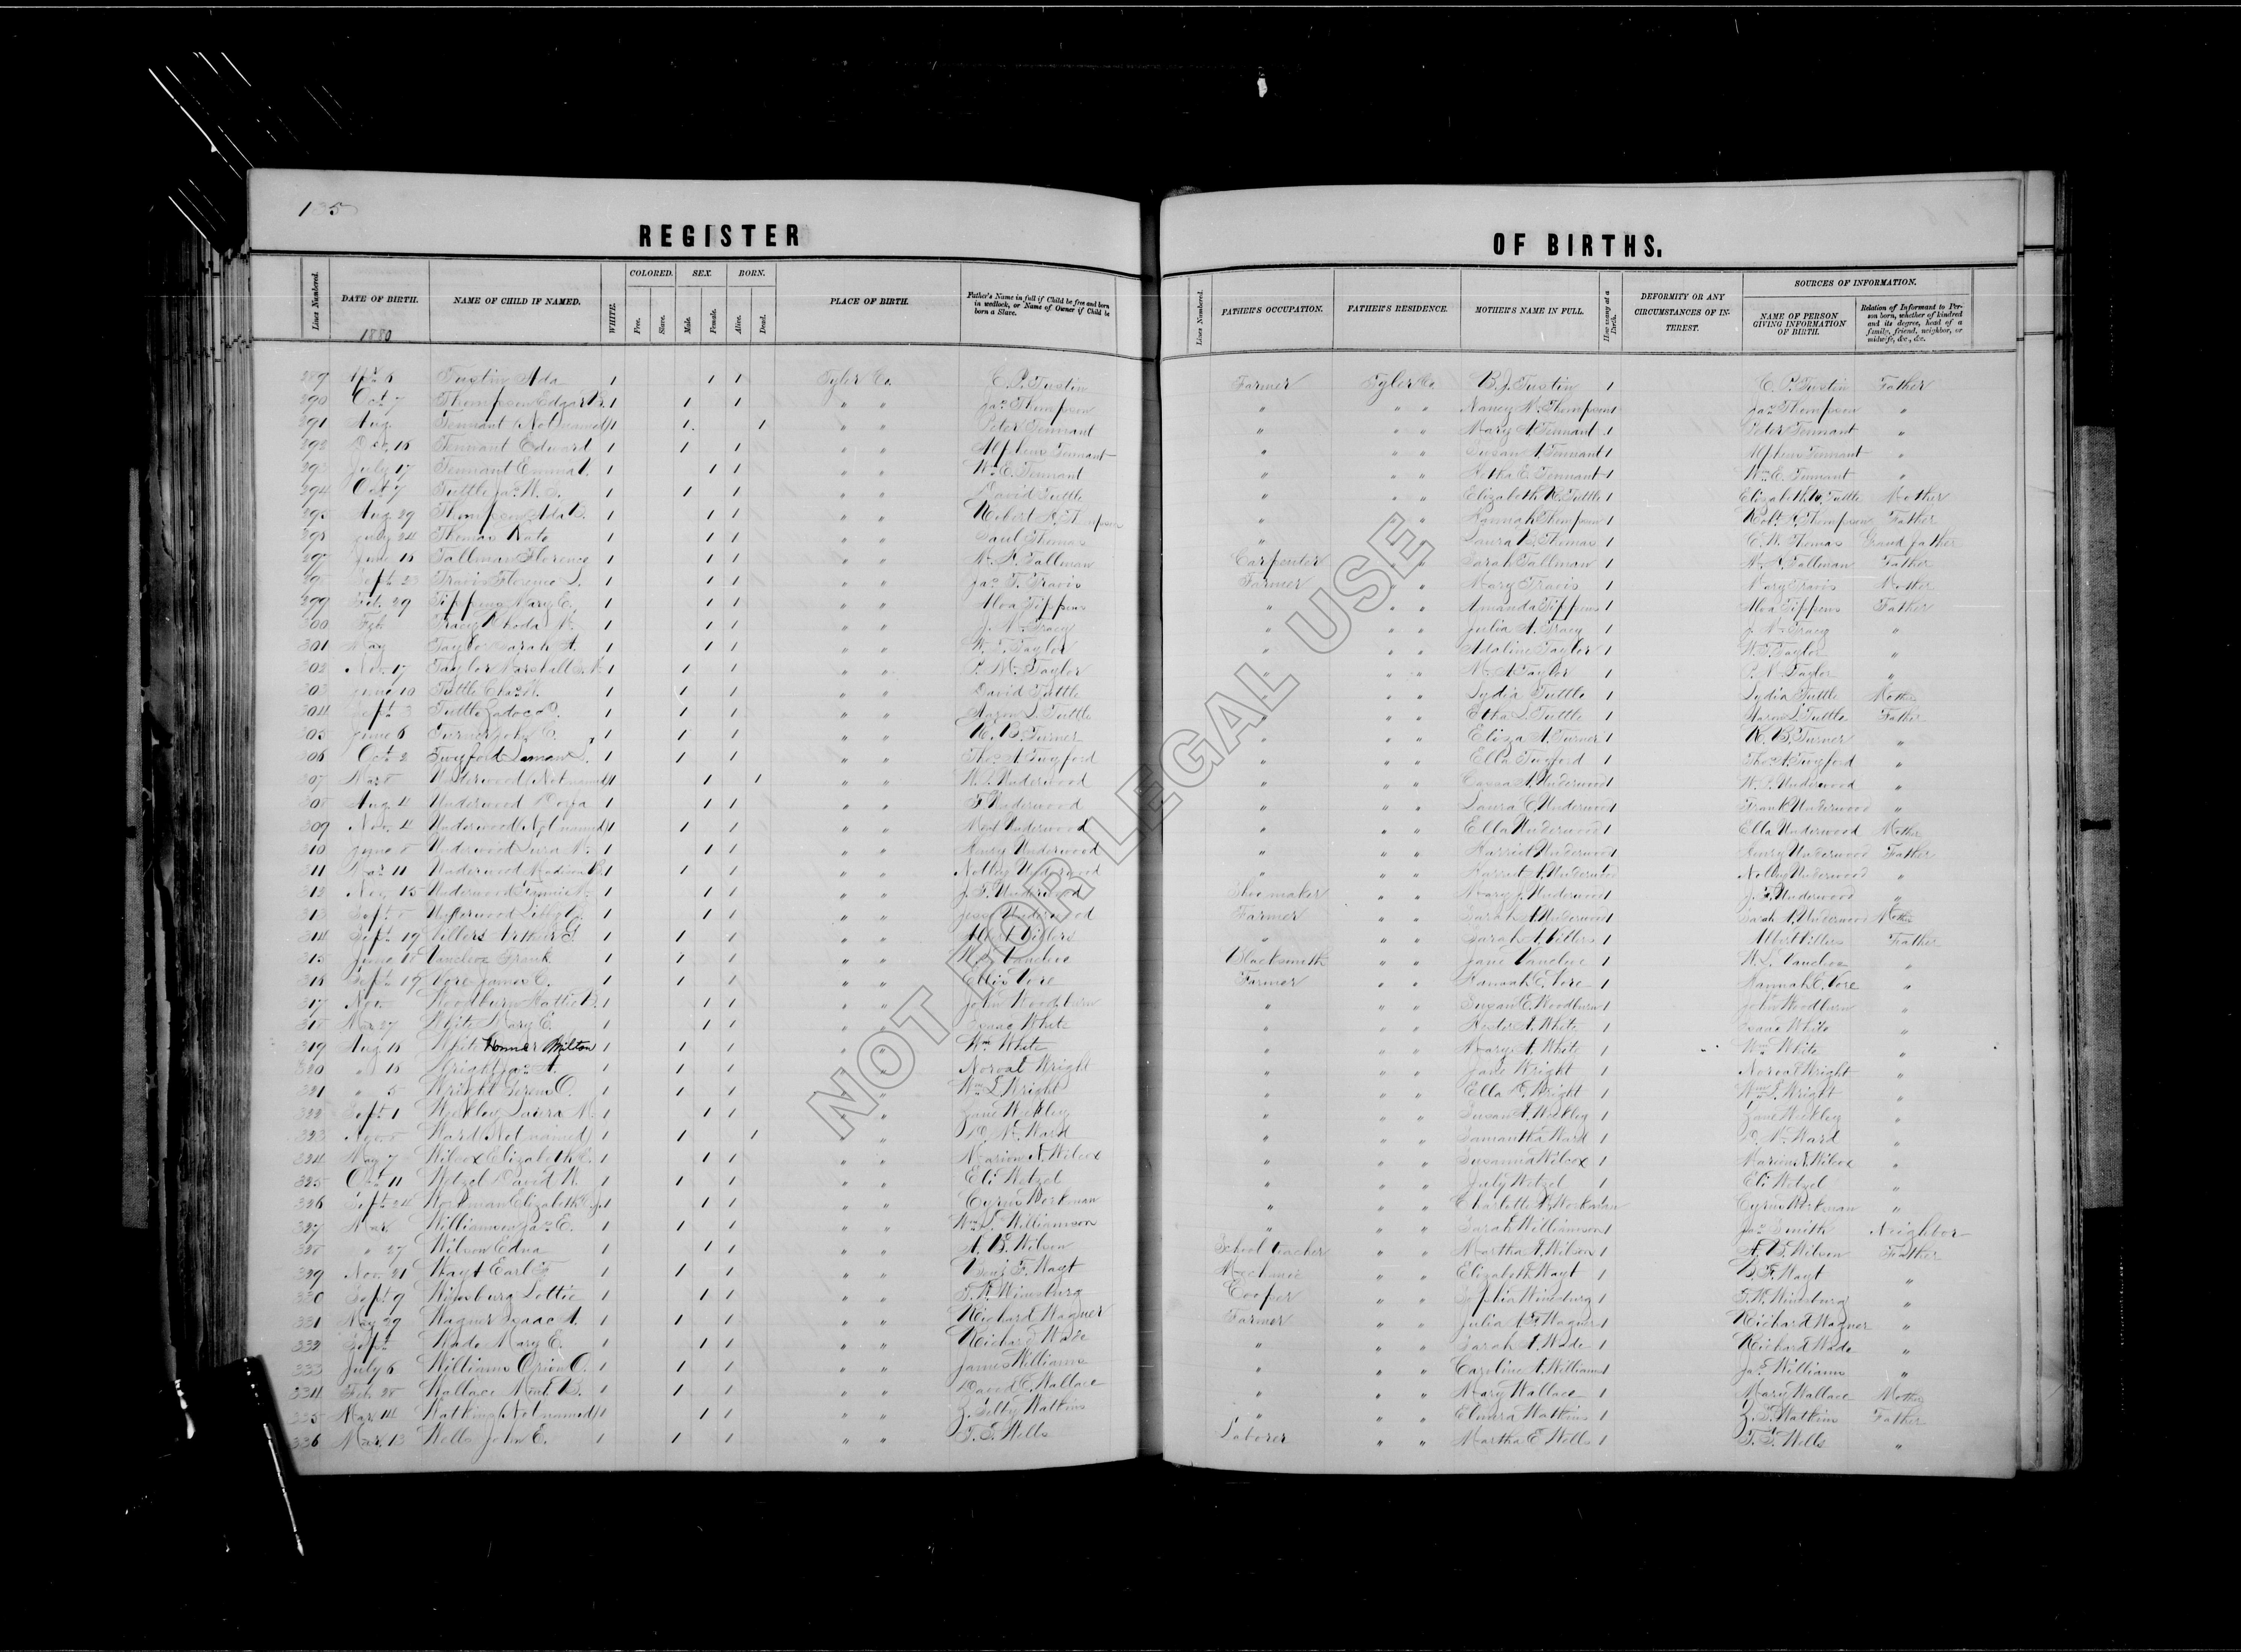 135
REGISTER OF BIRTHS.
Lines Numbered. DATE OF BIRTH. NAME OF CHILD IF NAMED. WHITE. COLORED. Free. Slave. SEX. Male. Female. BORN. Alive. Dead. PLACE OF BIRTH. Father's Name in full if Child be free and born in wedlock, or Name of Owner if Child be born a Slave. Lines Numbered. FATHER'S OCCUPATION. FATHER'S RESIDENCE. MOTHER'S NAME IN FULL. How many at a Birth. DEFORMITY OR ANY CIRCUMSTANCES OF INTEREST. SOURCES OF INFORMATION. NAME OF PERSON GIVING INFORMATION OF BIRTH. Relation of Informant to Person born, whether of kindred and its degree, head of a family, friend, neighbor, or midwife, &c., &c.
1880
289 Apr 6 Tustin Ada 1 1 1 Tyler Co. C. P. Tustin Farmer Tyler Co B. J. Tustin 1 C. P. Tustin Father
290 Oct 7 Thompson Edgar 1 1 1 " " Jas Thompson " " " Nancy Thompson 1 Jas Thompson "
291 Aug Tennant (Not named) 1 1 1 " " Peter Tennant " " " Mary A. Tennant 1 Peter Tennant "
292 Dec 18 Tennant Edward 1 1 1 " " Alpheus Tennant " " " Susan A Tennant 1 Alpheus Tennant "
293 July 17 Tennant Emma 1 1 1 " " Wm E. Tennant " " " E. Tennant 1 Wm E. Tennant "
294 Oct 7 Tuttle Jas W. 1 1 1 " " David Tuttle " " " Elizabeth Tuttle 1 Elizabeth Tuttle Mother
295 Aug 29 Thompson Ada 1 1 1 " " Robert Thompson " " " Hannah Thompson 1 Robt Thompson Father
July 24 Thomas Kate 1 1 1 " " Saul Thomas " " " Laura Thomas 1 E. W. Thomas Grand father
297 June 18 Tallman Florence 1 1 1 " " Tallman Carpenter " " Sarah Tallman 1 Tallman Father
Sept 23 Travis Florence 1 1 1 " " Jas T. Travis Farmer " " Mary Travis 1 Mary Travis Mother
299 Feb 29 Tippens Mary E. 1 1 1 " " Alva Tippens " " " Amanda Tippens 1 Alva Tippens Father
300 Feb Tracy Rhoda 1 1 1 " " Tracy " " " Julia A. Tracy 1 Tracy "
301 May Taylor Sarah A. 1 1 1 " " W. T. Taylor " " " Adaline Taylor 1 W. T. Taylor "
302 Nov. 17 Taylor Marshall 1 1 1 " " Taylor " " " M. A Taylor 1 Taylor "
303 June 10 Tuttle Chas W. 1 1 1 " " David Tuttle " " " Lydia Tuttle 1 Lydia Tuttle Mother
304 Sept 3 Tuttle Zadoc D. 1 1 1 " " Aaron L. Tuttle " " " Etha L. Tuttle 1 Aaron L. Tuttle Father
305 June 6 Turner John 1 1 1 " " R. B. Turner " " " Eliza A. Turner 1 R. B. Turner "
306 Oct 2 Twyford Leman 1 1 1 " " Thos A Twyford " " " Ella Twyford 1 Thos A. Twyford "
307 Mar 8 Underwood (Not named) 1 1 1 " " Underwood " " " Underwood 1 Underwood "
308 Aug. 4 Underwood 1 1 1 " " F Underwood " " " Laura C. Underwood 1 Frank Underwood "
309 Nov. 4 Underwood (Not named) 1 1 1 " " Underwood " " " Ella Underwood 1 Ella Underwood Mother
310 June 8 Underwood 1 1 1 " " Henry Underwood " " " Harriet Underwood 1 Henry Underwood Father
311 Mar 11 Underwood Madison 1 1 1 " " Notley Underwood " " " Harriet A. Underwood 1 Notley Underwood "
312 Nov 15 Underwood 1 1 1 " " J. F. Underwood Shoemaker " " Mary J. Underwood 1 J. F. Underwood "
313 Sept 8 Underwood Libby 1 1 1 " " Jesse Underwood Farmer " " Sarah A. Underwood 1 Sarah A. Underwood Mother
314 Sept 19 Villers Arthur G 1 1 1 " " Albert Villers " " " Sarah A. Villers 1 Albert Villers Father
315 June 18 Vancloe Frank 1 1 1 " " Blacksmith " " Jane 1 "
316 Sept 19 Vore James E. 1 1 1 " " Ellis Vore Farmer " " Hannah E. Vore 1 Hannah E. Vore "
317 Nov. Woodburn Hattie 1 1 1 " " John Woodburn " " " Susan E. Woodburn 1 John Woodburn "
318 Mar 27 White Mary E. 1 1 1 " " Isaac White " " " Hester A. White 1 Isaac White "
319 Aug 18 White Homer Milton 1 1 1 " " Wm White " " " Mary A. White 1 Wm White "
320 " 18 Wright Jas A. 1 1 1 " " Norval Wright " " " Jane Wright 1 Norval Wright "
321 " 5 Wright 1 1 1 " " Wm L. Wright " " " Ella Wright 1 Wm L. Wright "
322 Sept 1 Weekley Laura 1 1 1 " " Zane Weekley " " " Susan A. Weekley 1 Zane Weekley "
323 Nov. 8 Ward (Not named) 1 1 1 " " Ward " " " Samantha Ward 1 Ward "
324 May 7 Wilcox Elizabeth 1 1 1 " " Marion N. Wilcox " " " Susanna Wilcox 1 Marion N. Wilcox "
325 Oct 11 Wetzel David W. 1 1 1 " " Eli Wetzel " " " July Wetzel 1 Eli Wetzel "
326 Sept 24 Workman Elizabeth 1 1 1 " " Cyrus Workman " " " Charlotte Workman Cyrus Workman "
327 Mar Williamson Jas E. 1 1 1 " " Williamson " " " Sarah Williamson 1 Jas Smith Neighbor
328 " 27 Wilson Edna 1 1 1 " " A. B. Wilson School teacher " " Martha A. Wilson 1 A. B. Wilson Father
329 Nov. 21 Wayt Earl F 1 1 1 " " Benj F. Wayt Mechanic " " Elizabeth Wayt 1 B. F. Wayt "
330 Sept 9 Winsburg Lottie 1 1 1 " " Winsburg Cooper " " Sophia Winsburg 1 Winsburg "
331 May 29 Wagner Isaac A. 1 1 1 " " Richard Wagner Farmer " " Julia Wagner 1 Richard Wagner "
332 Sept Wade Mary E. 1 1 1 " " Richard Wade " " " Sarah A. Wade 1 Richard Wade "
333 July 6 Williams Orion O. 1 1 1 " " James Williams " " " Caroline A. Williams 1 Jas Williams "
334 Feb 28 Wallace B. 1 1 1 " " David E. Wallace " " " Mary Wallace 1 Mary Wallace Mother
335 Mar. 14 Watkins (Not named) 1 1 1 " " Z. Selby Watkins " " " Elmira Watkins 1 Z. S. Watkins Father
336 Mar. 13 Wells John E. 1 1 1 " " T. S. Wells Laborer " " Martha E Wells 1 T. S. Wells "
NOT FOR LEGAL USE